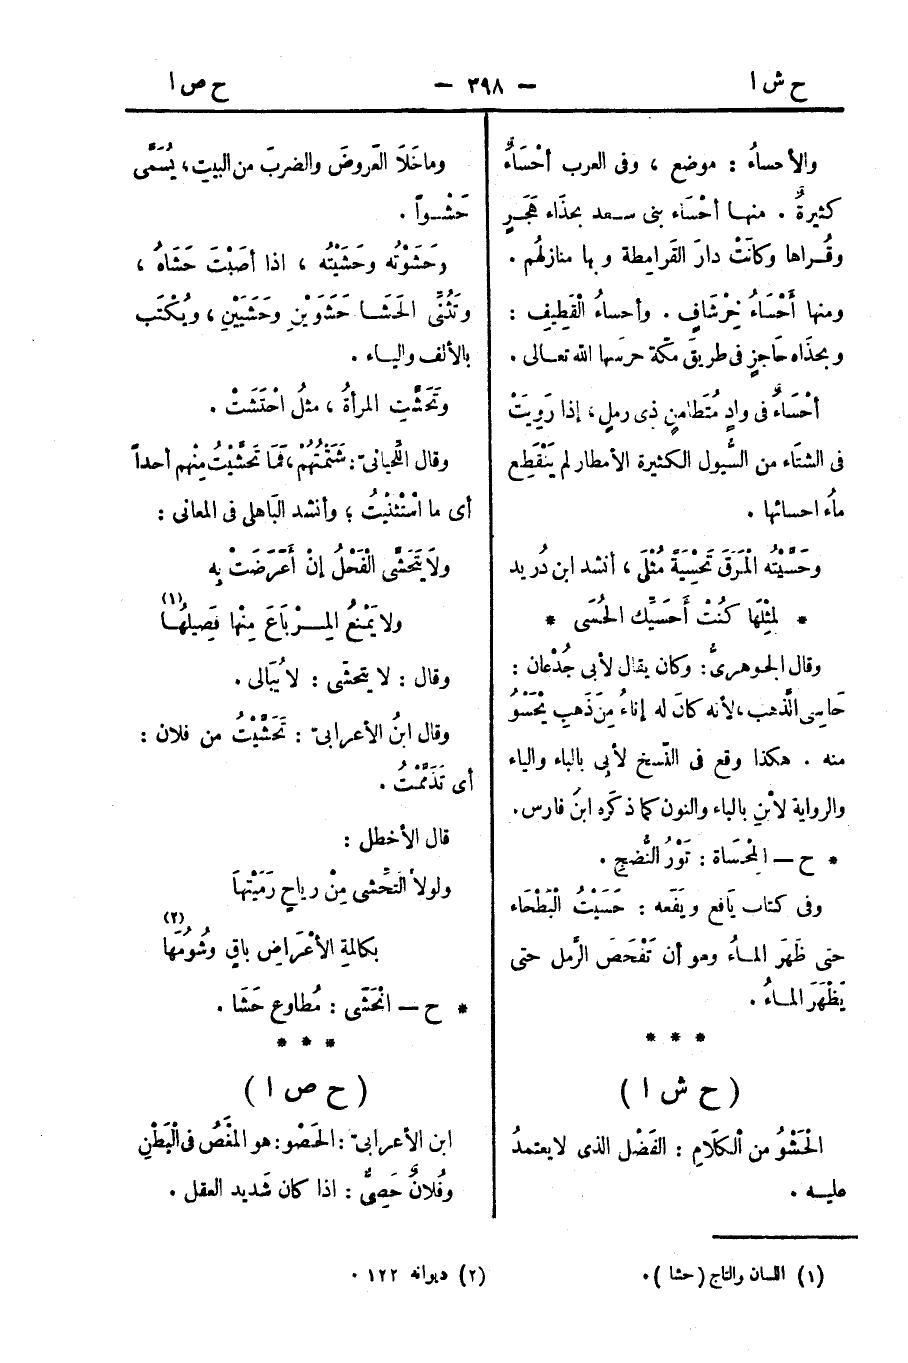 ح ش ا
— ٣٩٨ —
ح ص ا
والأحساءُ : موضع ، وفى العرب أحْسَاءٌ
كثيرةٌ . منهـا أحْسَاء بنى سـعد بحذَاء هَجَرٍ
وقُـراها وكانَتْ دارَ القَرامِطة و بها منازلُهُم .
ومنها أَحْسَاءُ خِرْشَافٍ . وأحساءُ الْقَطِيف :
و بحذَاه حَاجزٍ فى طريقَ مكّة حرسَها الله تعـالى .
أحْسَاءٌ فى وادٍ مُتَطَامنٍ ذى رملٍ ، إذا رَوِيَتْ
فى الشتَاء من السُّيول الكثيرة الأمطار لم يَنْقَطِع
ماءُ احسائها .
وحَسَّيْتُه الْمَرَقَ تَحْسِيَةً مُثْلَى ، أنشد ابن دُريد
* لِمِثْلِهَا كُنْتُ أَحَسِّيك الحُسَى *
وقال الجوهرىُّ : وكان يقال لأبى جُدْعان :
حَاسِى الذَّهب ، لأنه كانَ له إناءُ مِن ذَهبٍ يَحْسُو
منه . هكذا وقع فى النّسخ لأبى بالباء والياء
والرواية لاْبنِ بالباء والنون كما ذكَره ابنُ فارس .
* ح — المِحْسَاة : تَوْرُ النُّضجِ .
وفى كتاب يَافع ويَفَعه : حَسَيْتُ الْبَطْحَاء
حتى ظَهَرَ المـاءُ وهو أن تَفْحَصَ الرَّمل حتى
يَظْهَرَ المـاءُ .
* * *
( ح ش ا )
الحَشْوُ من اْلكَلَامِ : الفَضْل الذى لا يعتمدُ
عليـه .
وما خَلَا العَروضَ والضربَ من البيتِ ، يُسَمَّى
حَشْـواً .
وحَشَوْتُه وحَشَيْتُه ، اذا أصَبْتَ حَشَاهُ ،
وَتُثَنَّى الحَشَـا حَشَوَيْنِ وحَشَيَيْنِ ، ويُكْتَب
بالألف واليـاء .
وتَحَشَّتِ المرأةُ ، مثلُ احْتَشَتْ .
وقال اللِّحيانىّ : شَتَمْتُهُمْ ، فَمَا تَحَشَّيْتُ مِنْهم أحداً
أى ما اسْتَثْنَيْتُ ؛ وأنشد البَاهلى فى المعانى :
ولَا يَتَحَشَّى الْفَحْلُ إنْ أَعْرَضَتْ بِهِ
ولا يَمْنَعُ المِـرْبَاعَ مِنْها فَصِيلُهَـا (١)
وقال : لا يتحشّى : لا يُبَالى .
وقال ابنُ الأعرابىّ : تَحَشَّيْتُ من فلان :
أى تَذَمَّمْتُ .
قال الأخطل :
ولولا التَحَشِّى مِنْ رياحٍ رَمَيْتُهَا
بكالمةِ الأعْرَاضِ باقٍ وشُومُهَا (٢)
* ح — انْحَشَى : مُطاوع حَشَا .
* * *
( ح ص ا )
ابن الأعرابىّ : الحَصْو : هو المَغَصُ فى الْبَطْنِ
وفُلانٌ حَصِىٌّ : اذا كان شَديد العقل .
(١) اللسان والتاج ( حشا ) .
(٢) ديوانه ١٢٢ .